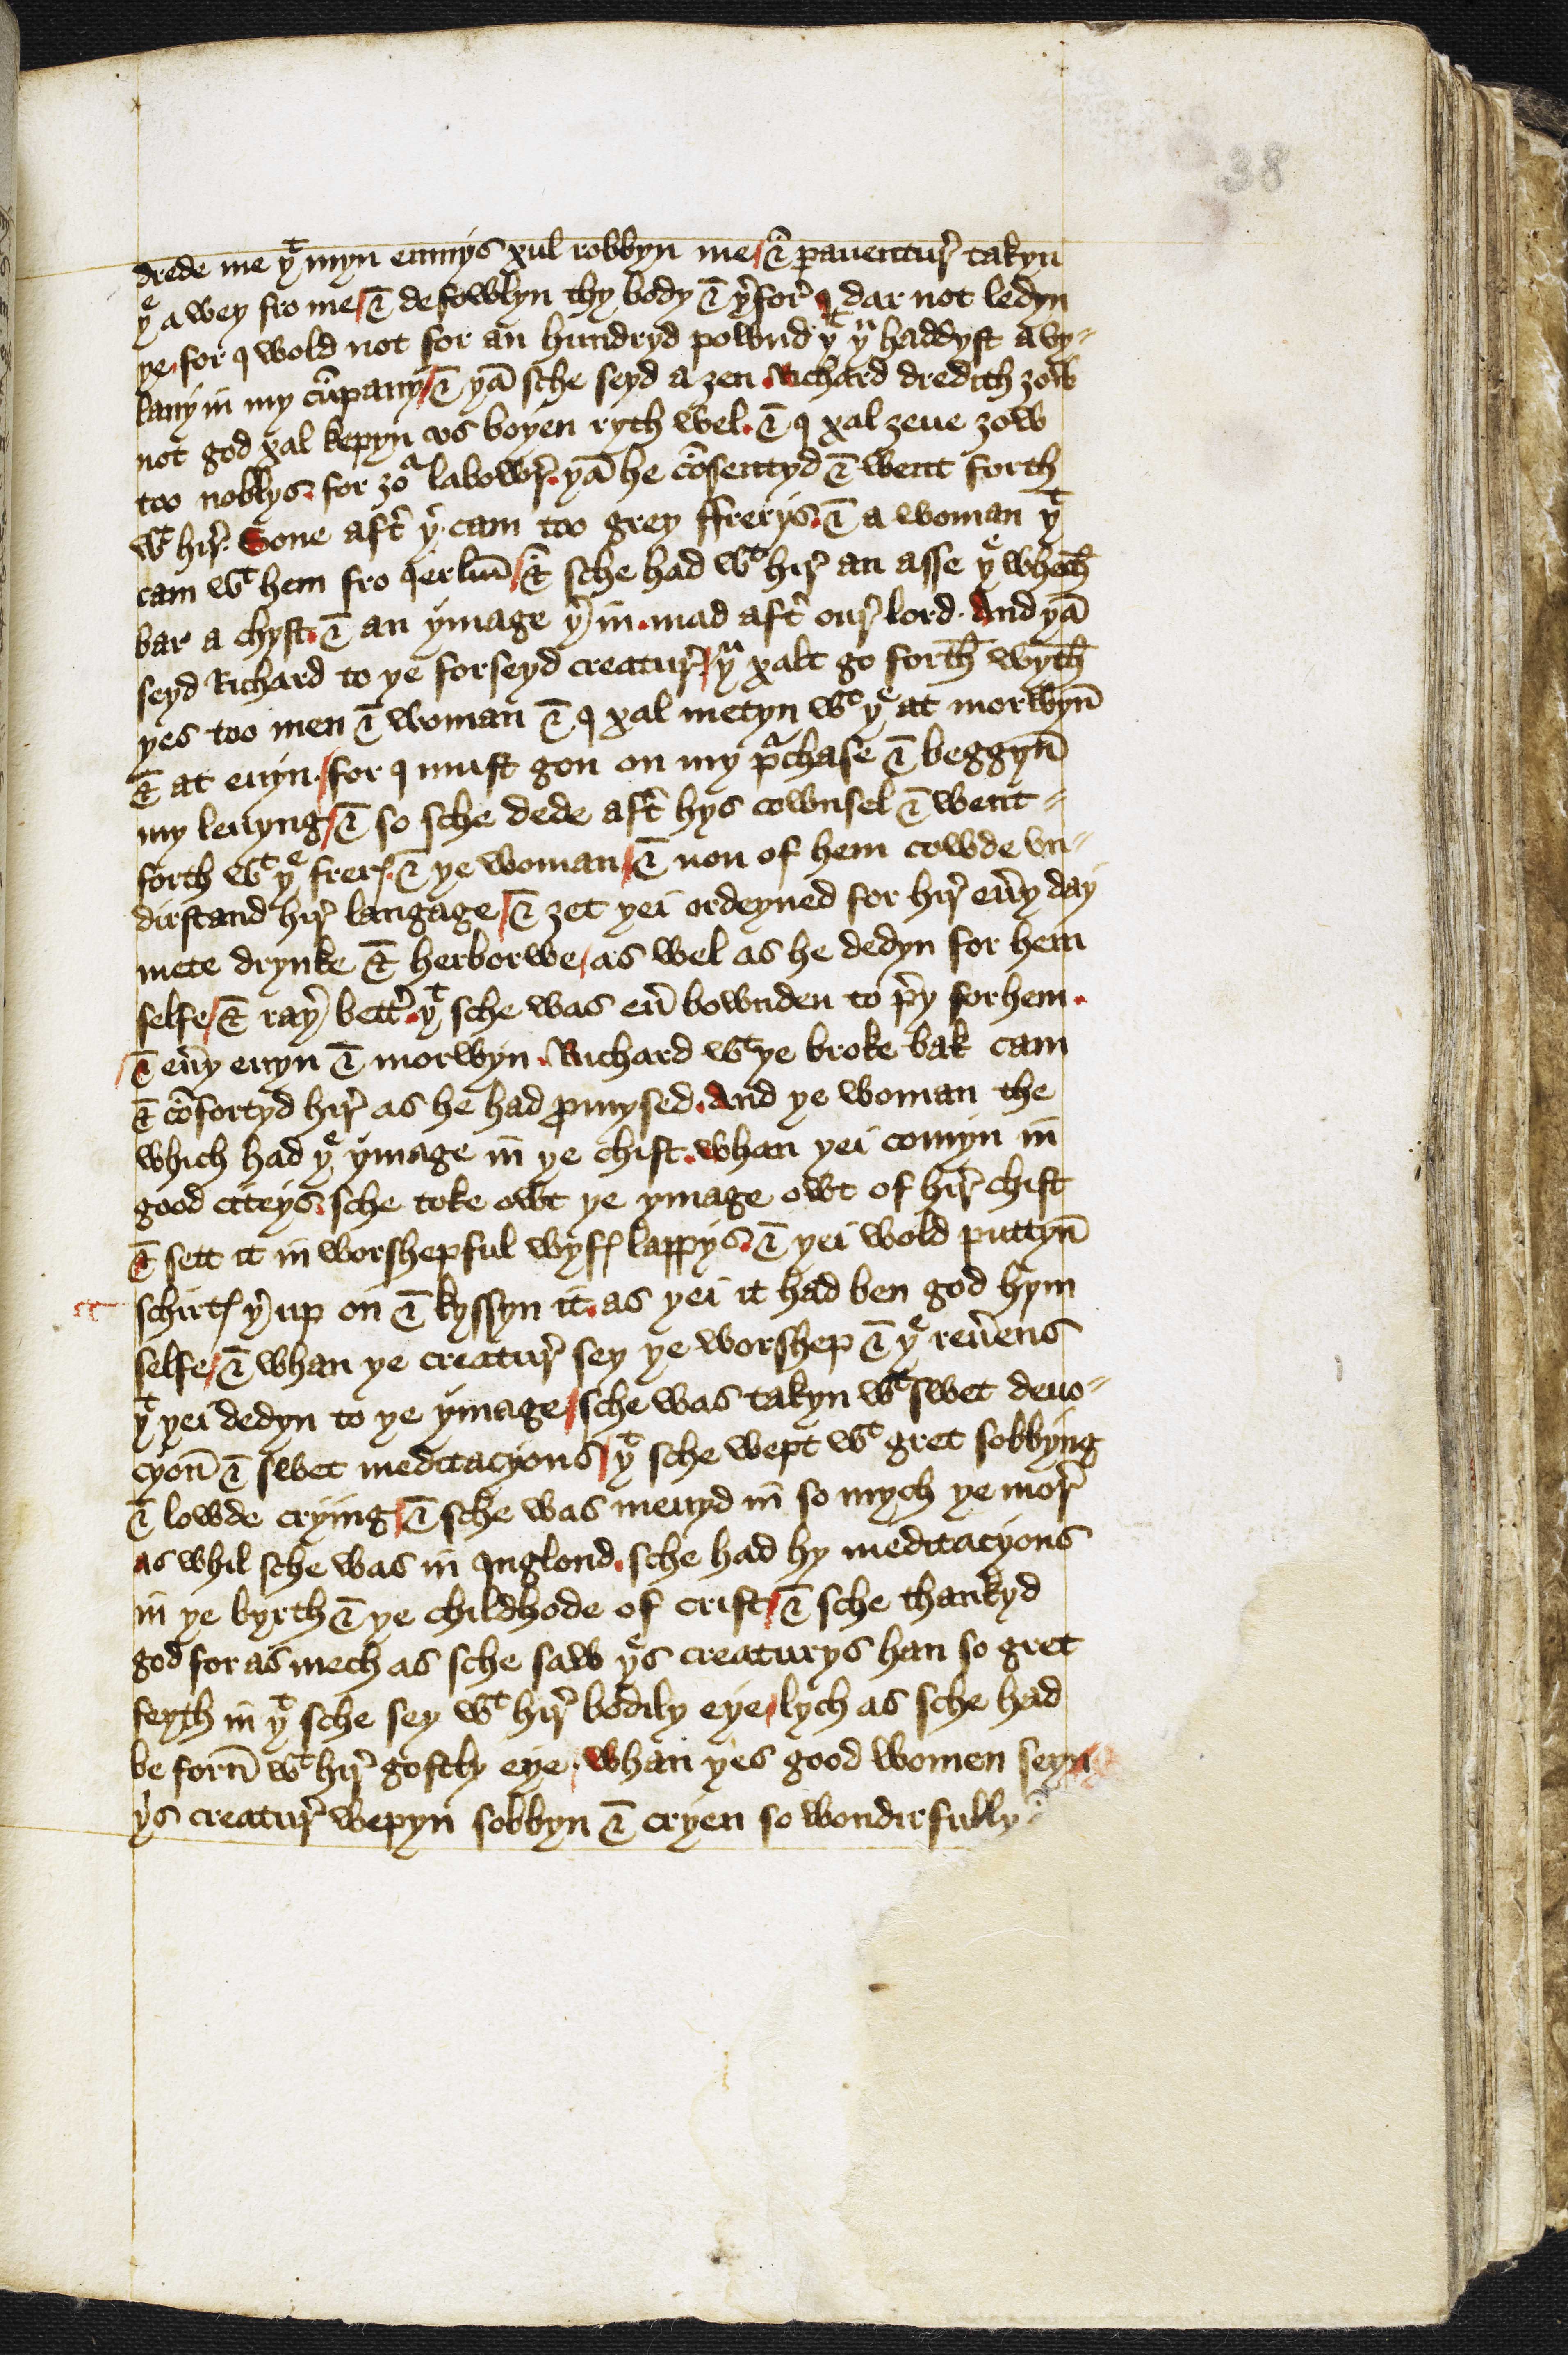 38
drede me yͭ myn enmys xul robbyn me / & pauentur̛ takyn
yͤ a wey fro me / & defowlyn thy body & yͬfor̛ I dar not ledyn
ye. for I wold not for an hundryd pownd yͭ yͧ haddyst a vy⸗
lany in my cūpany / & yā sche seyd a ȝen. Richard dredith ȝow
not god xal kepyn vs boyen ryth wel. & I xal ȝeue ȝow
too noblys. for ȝoͬ labowr̛. yā he cōsentyd & went forth
wͭ hir̛. Sone aft̛ yͬ. cam too grey ffrerys. & a woman yͭ
cam wͭ hem fro Ierlm̄ / & sche had wͭ hir̛ an asse yͤ whech
bar a chyst. & an ymage yͬ in. mad aft̛ our̛ lord. And yā
seyd Richard to ye forseyd creatur̛ / yͧ xalt go forth wyth
yes too men & woman & I xal metyn wͭ yͤ at morwyn̄
& at euyn. / for I must gon on my p̛chase & beggyn̄
my leuyng / & so sche dede aft̛ hys cownsel & went⸗
forth wͭ yͤ frerꝭ. & ye woman / & non of hem cowde vn⸗
dirstand hir̛ langage / & ȝet yei ordeyned for hir̛ eưy day
mete drynke & herborwe / as wel as he dedyn for hem
selfe / & rayͬ bett̛. yͭ sche was eư bownden to p̛y for hem.
/ & eưy euyn & morwyn. Richard wͭ ye broke bak cam
& cōfortyd hir̛ as he had ꝓmysed. And ye woman the
which had yͤ ymage in̄ ye chist. whan yei comyn in̄
good citeys. sche toke owt ye ymage owt of hir̛ chist
& sett it in worshepful wyfꝭ lappys. & yei wold puttyn̄
schirtꝭ yͬ up on & kyssyn it. as yei it had ben god hym
selfe / & whan ye creatur̛ sey ye worshep & yͤ reưens
yͭ yei dedyn to ye ymage / sche was takyn wͭ swet deuo⸗
cyon̄ & swet meditacyons / yͭ sche wept wͭ gret sobbyng
& lowde crying / & sche was meuyd in̄ so mych ye mor̛
as whil sche was in Inglond. sche had hy meditacyons
in ye byrth & ye childhode of crist / & sche thankyd
god for as mech as sche saw yͤs creaturys han so gret
feyth in yͭ sche sey wͭ hir̛ bodily eye / lych as sche had
be forn̄ wͭ hir̛ gostly eye. / whan yes good women seyn
yͥs creatur̛ wepyn sobbyn & cryen so wondirfully